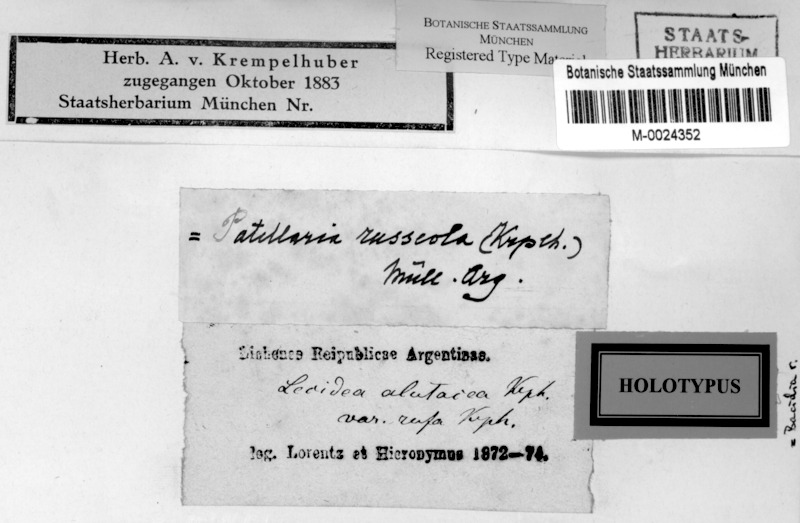 Herb. A. v. Krempelhuber
zugegangen Oktober 1883
Staatsherbarium München Nr.
BOTANISCHE STAATSSAMMLUNG
MÜNCHEN
Registered Type Mater
STAATS-
HERBARIUM
Botanische Staatssammlung München
M-0024352
= Patellaria russeola (Krplh.)
Müll. Arg.
Lichenes Reipublicae Argentinae.
Lecidea alutacea Krph.
var. rufa Krph.
leg. Lorentz et Hieronymus 1872—74.
HOLOTYPUS
= Bacidia r.